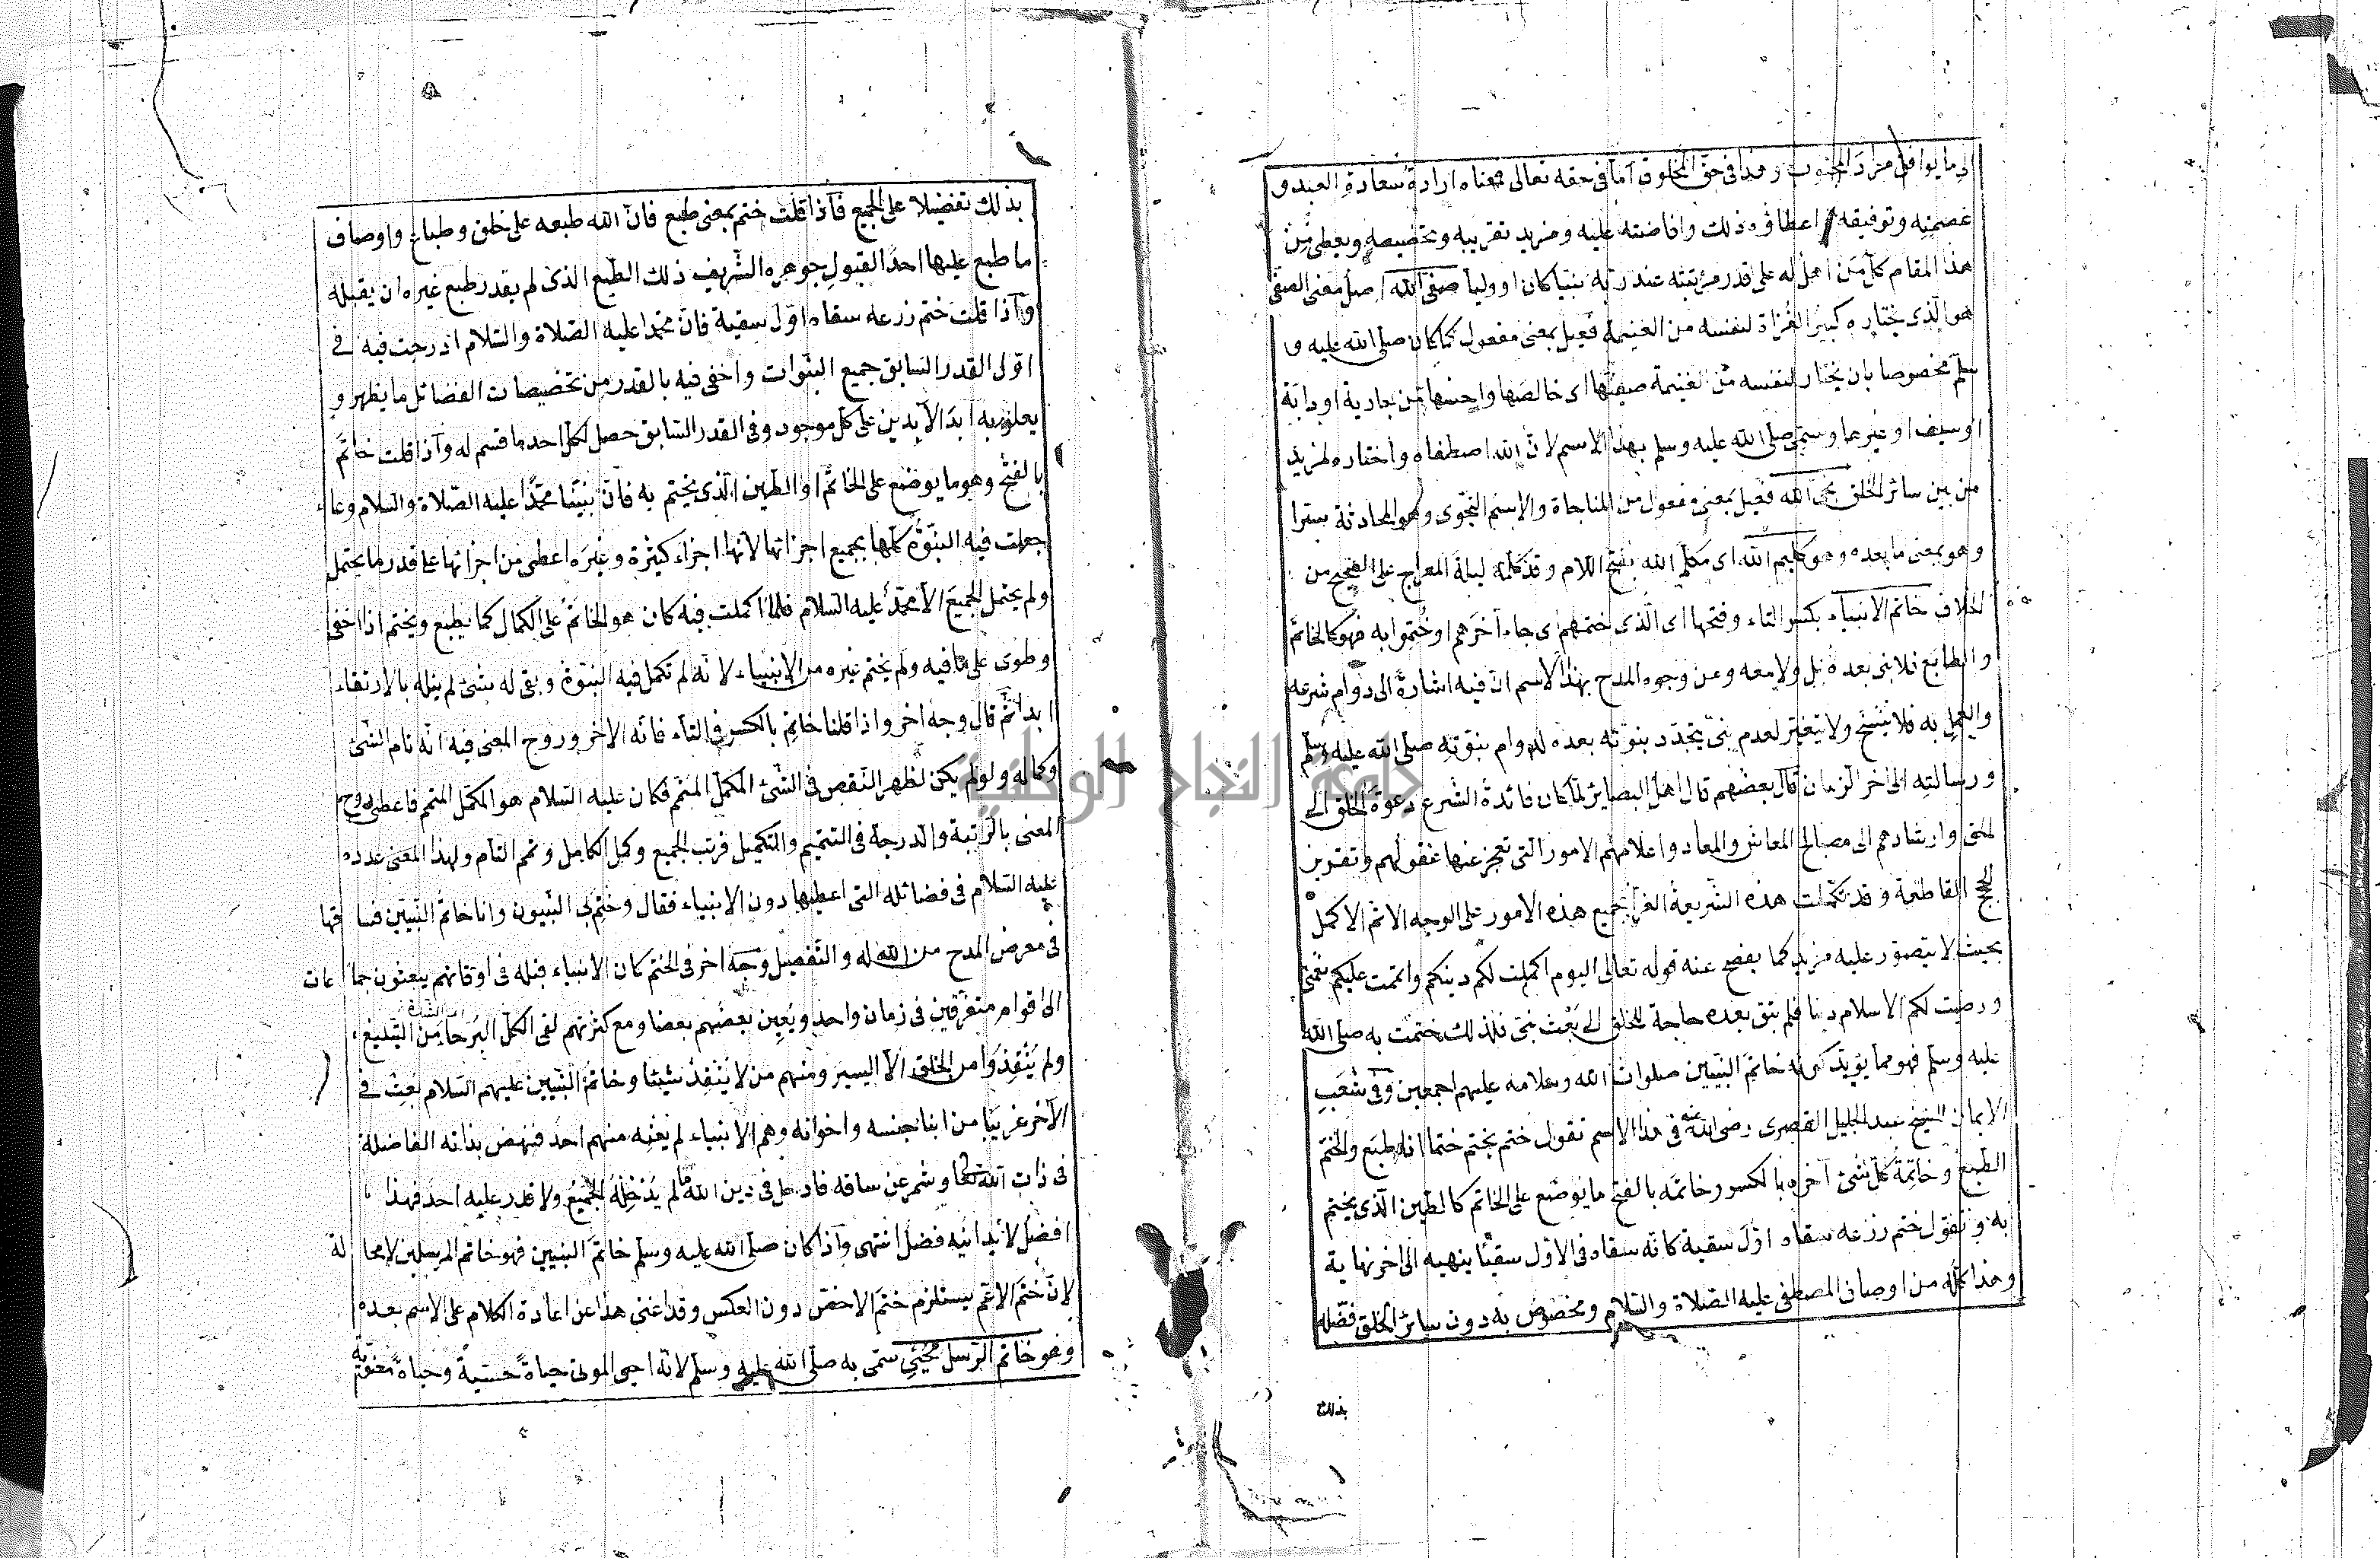 الى ما يوافق مراد المحبوب وهذا فى حق المخلوق اما فى حقه تعالى فمعناه ارادة سعادة العبد و
عصمته وتوفيقه اعطاؤه ذلك وافاضته عليه ومزيد تقريبه وتخصيصه ويعطى من
هذا المقام كل من اهل له على قدر مرتبته عند ربه نبيا كان او وليا صفى الله اصل معنى الصفى
هو الذى يختاره كبير الغزاة لنفسه من الغنيمة فعيل بمعنى مفعول كما كان صلى الله عليه و
سلم مخصوصا بان يختار لنفسه من الغنيمة صفيها اى خالصها واحسنها من جارية او دابة
او سيف او غيرهما وسمى صلى الله عليه وسلم بهذا الاسم لان الله اصطفاه واختاره لمزيد
من بين سائر الخلق نجى الله فعيل بمعنى مفعول من المناجاة والاسم النجوى وهو المحادثة بسترا
وهو بمعنى ما بعده وهو كليم الله اى مكلم الله بفتح اللام وقد كلمه ليلة المعراج على الصحيح من
الخلاف خاتم الانبياء بكسر التاء وفتحها اى الذى ختمهم اى جاء آخرهم او ختموا به فهو كالخاتم
والطابع فلا نبى بعده بل ولا معه وعن وجوه المدح بهذا الاسم ان فيه اشارة الى دوام شرعه
والعمل به فلا ينسخ ولا يتغير لعدم نبى يتجدد بنوته بعده لدوام نبوته صلى الله عليه وسلم
ورسالته الى اخر الزمان قال بعضهم قال اهل البصاير لما كان فائدة الشرع دعوة الخلق الى
الحق وارشادهم الى مصالح المعاش والمعاد واعلامهم الامور التى تعجز عنها عقولهم وتقرير
الحجج القاطعة وقد تكملت هذه الشريعة الغرا بجميع هذه الامور على الوجه الاتم الاكمل
بحيث لا يتصور عليه مزيد كما يفصح عنه قوله تعالى اليوم اكملت لكم دينكم واتممت عليكم نعمتى
ورضيت لكم الاسلام دينا فلم تبق بعده حاجة للخلق الى بعث نبى فلذلك ختمت به صلى الله
عليه وسلم فهو مما يؤيد كونه خاتم النبيين صلوات الله وسلامه عليهم اجمعين وفى شعب
الايمان للشيخ عبد الجليل القصرى رضى الله عنه فى هذا الاسم تقول ختم يختم ختما اذا طبع والختم
الطبع وخاتمة كل شئ آخره بالكسر وخاتمه بالفتح ما يوضع على الخاتم كالطين الذى يختم
به وتقول ختم زرعه سقاه اول سقية كانه سقاه فى الاول سقيا ينهيه الى اخر نهاية
وهذا كله من اوصاف المصطفى عليه الصلاة والسلام ومخصوص به دون سائر الخلق فضله
بذلك
بذلك تفضيلا على الجميع فاذا قلت ختم بمعنى طبع فان الله طبعه على خلق وطباع واوصاف
ما طبع عليها احد القبول جوهره الشريف ذلك الطبع الذى لم يقدر طبع غيره ان يقبله
واذا قلت ختم زرعه سقاه اول سقية فان محمدا عليه الصلاة والسلام ادرجت فيه فى
اولى القدر السابق جميع النبوات واخفى فيه بالقدر من تخصيصات الفضائل ما يظهر و
يعلو به ابد الآبدين على كل موجود وفى القدر السابق حصل لكل احد ما قسم له واذا قلت خاتم
بالفتح وهو ما يوضع على الخاتم او الطين الذى يختم به فان نبينا محمدا عليه الصلاة والسلام وعا
جعلت فيه النبوة كلها بجميع اجزائها لانها اجزاء كثيرة وغيره اعطى من اجزائها على قدر ما يحتمل
ولم يحتمل الجميع الا محمد عليه السلام فلما اكملت فيه كان هو الخاتم على الكمال كما يطبع ويختم اذا اخفى
وطوى على ما فيه ولم يختم غيره من الانبياء لانه لم تكمل فيه النبوة وبقى له شئ لم ينله بالارتقاء
ابدا ثم قال وجه اخر واذا قلنا خاتم بالكسر فى التاء فانه الاخر وروح المعنى فيه انه تام الشئ
وكماله ولو لم يكن لظهر النقص فى الشئ المكمل المتمم فكان عليه السلام هو المكمل المتمم فاعطى روح
المعنى بالرتبة والدرجة فى التتميم والتكميل فرتب الجميع وكمل الكامل وتمم التام ولهذا المعنى عدده
عليه السلام فى فضائله التى اعطيها دون الانبياء فقال وختم بى النبيون وانا خاتم النبيين فسا قها
فى معرض المدح من الله له والتفصيل وجه اخر فى الختم كان الانبياء قبله فى اوقاتهم يبعثون جماعات
الى اقوام متفرقين فى زمان واحد ويعين بعضهم بعضا ومع كثرتهم لقى الكل البرحا من التبليغ
ولم ينقذوا من الخلق الا اليسير ومنهم من لا ينقذ شيئا وخاتم النبيين عليهم السلام بعث فى
الآخر غريبا من ابنا جنسه واخوانه وهم الانبياء لم يعنه منهم احد فنهض بذاته الفاضلة
فى ذات الله وشمر عن ساقه فادخل فى دين الله ما لم يدخله الجميع ولا قدر عليه احد فهذا
افضل لا يدانيه فضل انتهى واذا كان صلى الله عليه وسلم خاتم النبيين فهو خاتم المرسلين لا محالة
لان ختم الاعم يستلزم ختم الاخص دون العكس وقد اغنى هذا عن اعادة الكلام على الاسم بعده
وهو خاتم الرسل محيى سمى به صلى الله عليه وسلم لانه احيى الموتى حياة حسية وحياة معنوية
جامعة النجاح الوطنية